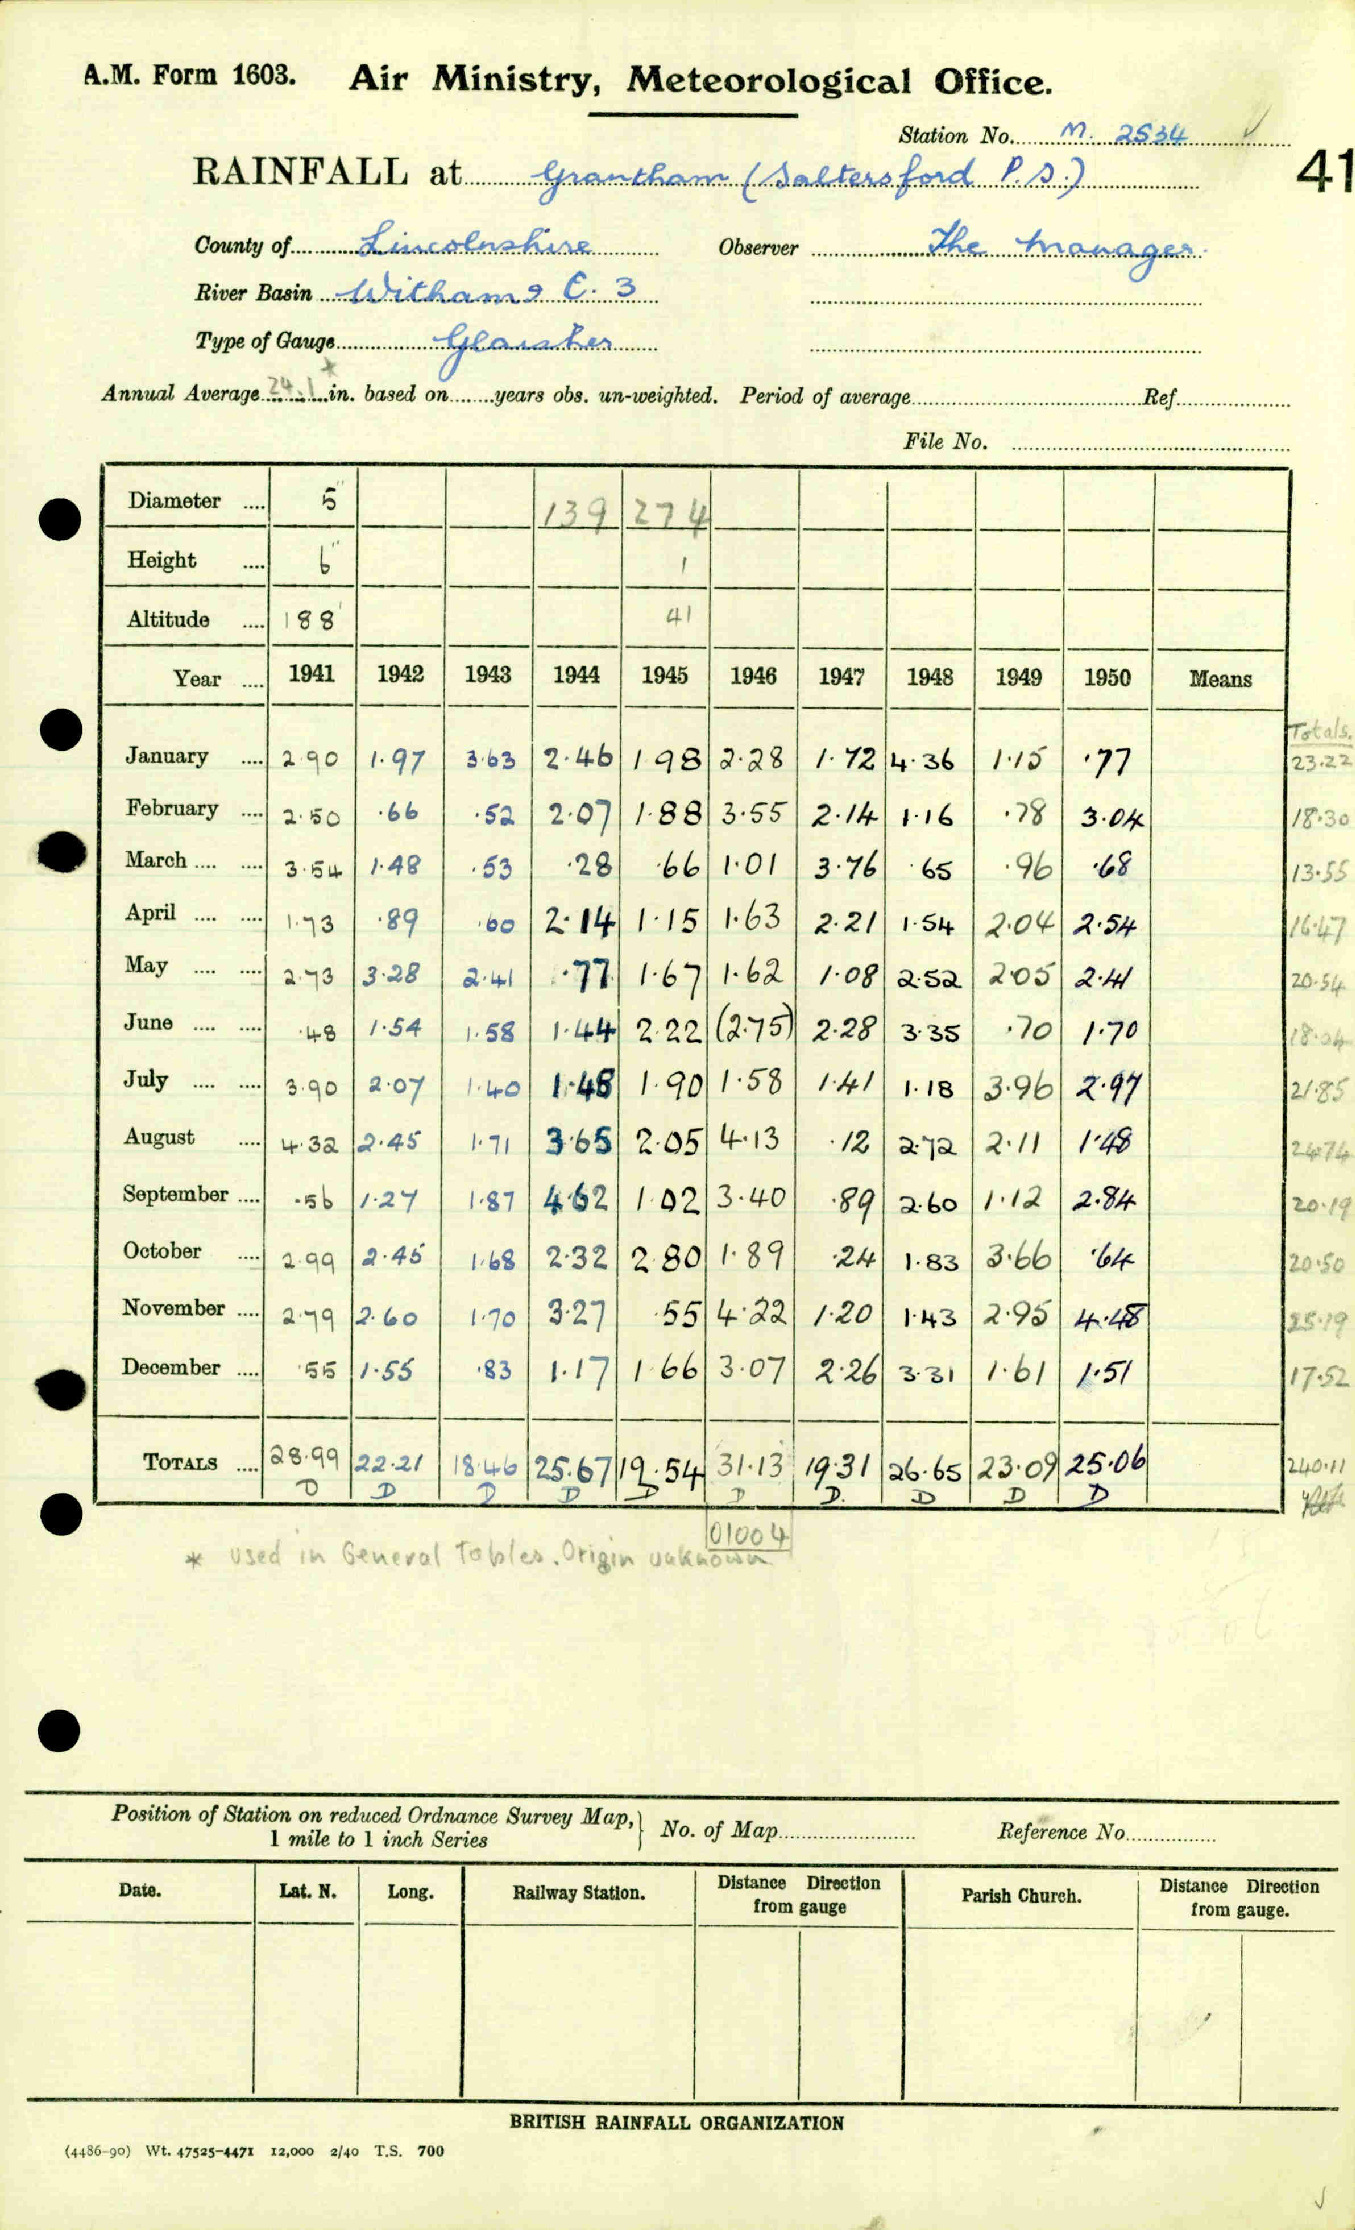 A.M. Form 1603. Air Ministry, Meteorological Office.
Station No. M. 2534
41
RAINFALL at Grantham (Saltersford P.S.)
County of Lincolnshire Observer The Manager.
River Basin Witham & C. 3
Type of Gauge Glaisher
Annual Average 24.1* in. based on years obs. un-weighted. Period of average Ref.
File No.
Diameter .... 5" 139 274
Height .... 6" 1
Altitude .... 188' 41
Year .... 1941 1942 1943 1944 1945 1946 1947 1948 1949 1950 Means
Totals.
January .... 2.90 1.97 3.63 2.46 1.98 2.28 1.72 4.36 1.15 .77 23.22
February .... 2.50 .66 .52 2.07 1.88 3.55 2.14 1.16 .78 3.04 18.30
March .... .... 3.54 1.48 .53 .28 .66 1.01 3.76 .65 .96 .68 13.55
April .... .... 1.73 .89 .60 2.14 1.15 1.63 2.21 1.54 2.04 2.54 16.47
May .... .... 2.73 3.28 2.41 .77 1.67 1.62 1.08 2.52 2.05 2.41 20.54
June .... .... .48 1.54 1.58 1.44 2.22 (2.75) 2.28 3.35 .70 1.70 18.04
July .... .... 3.90 2.07 1.40 1.48 1.90 1.58 1.41 1.18 3.96 2.97 21.85
August .... 4.32 2.45 1.71 3.65 2.05 4.13 .12 2.72 2.11 1.48 24.74
September .... .56 1.27 1.87 4.62 1.02 3.40 .89 2.60 1.12 2.84 20.19
October .... 2.99 2.45 1.68 2.32 2.80 1.89 .24 1.83 3.66 .64 20.50
November .... 2.79 2.60 1.70 3.27 .55 4.22 1.20 1.43 2.95 4.48 25.19
December .... .55 1.55 .83 1.17 1.66 3.07 2.26 3.31 1.61 1.51 17.52
TOTALS .... 28.99 22.21 18.46 25.67 19.54 31.13 19.31 26.65 23.09 25.06 240.11
D D D D D D D. D D D
01004
* Used in General Tables. Origin unknown
Position of Station on reduced Ordnance Survey Map,
1 mile to 1 inch Series } No. of Map Reference No.
Date. Lat. N. Long. Railway Station. Distance Direction from gauge Parish Church. Distance Direction from gauge.
BRITISH RAINFALL ORGANIZATION
(4486-90) Wt. 47525-4471 12,000 2/40 T.S. 700